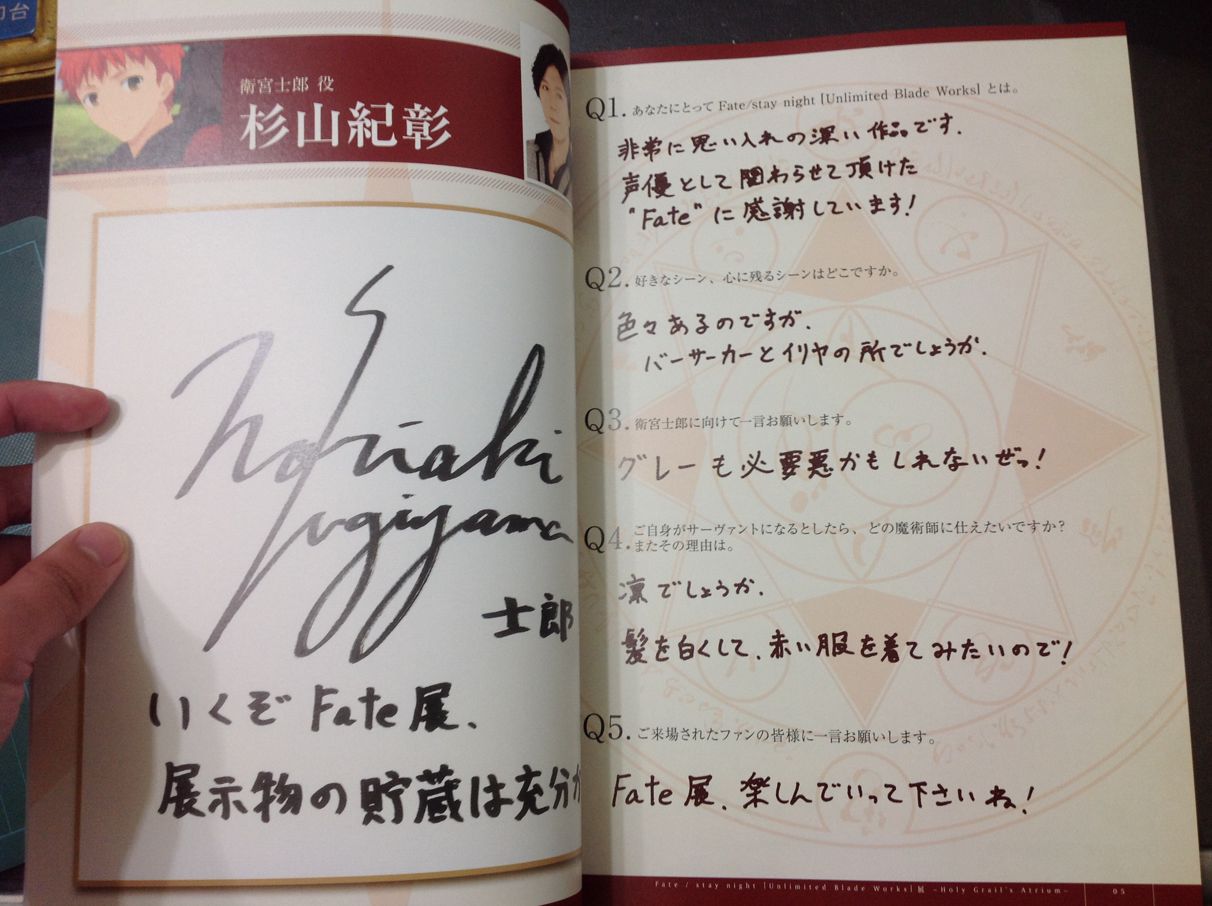 衛宮士郎 役
杉山紀彰
Noriaki
Sugiyama
士郎
いくぞ Fate展、
展示物の貯蔵は充分か
Q1. あなたにとって Fate/stay night [Unlimited Blade Works] とは。
非常に思い入れの深い作品です.
声優として関わらせて頂けた
"Fate" に感謝しています!
Q2. 好きなシーン、心に残るシーンはどこですか。
色々あるのですが.
バーサーカーとイリヤの所でしょうか.
Q3. 衛宮士郎に向けて一言お願いします。
グレーも必要悪かもしれないぜっ!
Q4. ご自身がサーヴァントになるとしたら、どの魔術師に仕えたいですか?
またその理由は。
凛でしょうか.
髪を白くして、赤い服を着てみたいので!
Q5. ご来場されたファンの皆様に一言お願いします。
Fate展、楽しんでいって下さいね!
Fate / stay night [Unlimited Blade Works] 展 -Holy Grail's Atrium-
05